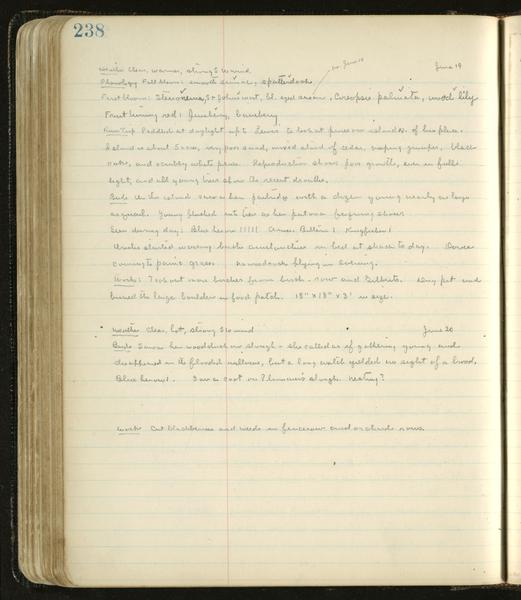 238
Weather Clear, warmer, strong S wind June 19
Phenology Full bloom: smooth sumac, spatterdock no. June 10
First bloom: St Johnswort, bl. eyed susan, Coreopsis palmata, wood lily
First turning red: Juneberry,
River Trip Paddled at daylight up to Lewis to look at pine on island of his place.
Island is about 5 acres, very poor sand, mixed stand of cedar, creeping juniper, black
oaks, and scrubby white pine. Reproduction shows poor growth, even in full
light, and all young trees show the recent drouths.
Birds On the island saw a hen partridge with a dozen young nearly as large
as quail. Young flushed into trees as hen put on a frightening show.
Seen during day: Blue heron 11111 Amer. Bittern 1 Kingfisher 1
started working birds and in bed at shack today. Doves
coming to panic grass no woodcock flying in evening.
Work: Took out more birches from birch row and Gilberts. Dug pit and
buried the large boulder in food patch. 18" x 18" x 3' in size.
Weather Clear, hot, strong S wind June 20
Birds Saw a hen woodduck in slough - she called as if gathering young and
disappeared in the flooded willows, but a long watch yielded no sight of a brood.
Blue heron 1. Saw a coot on slough. Nesting?
Work Cut blackberries and weeds in fencerow and orchard rows.